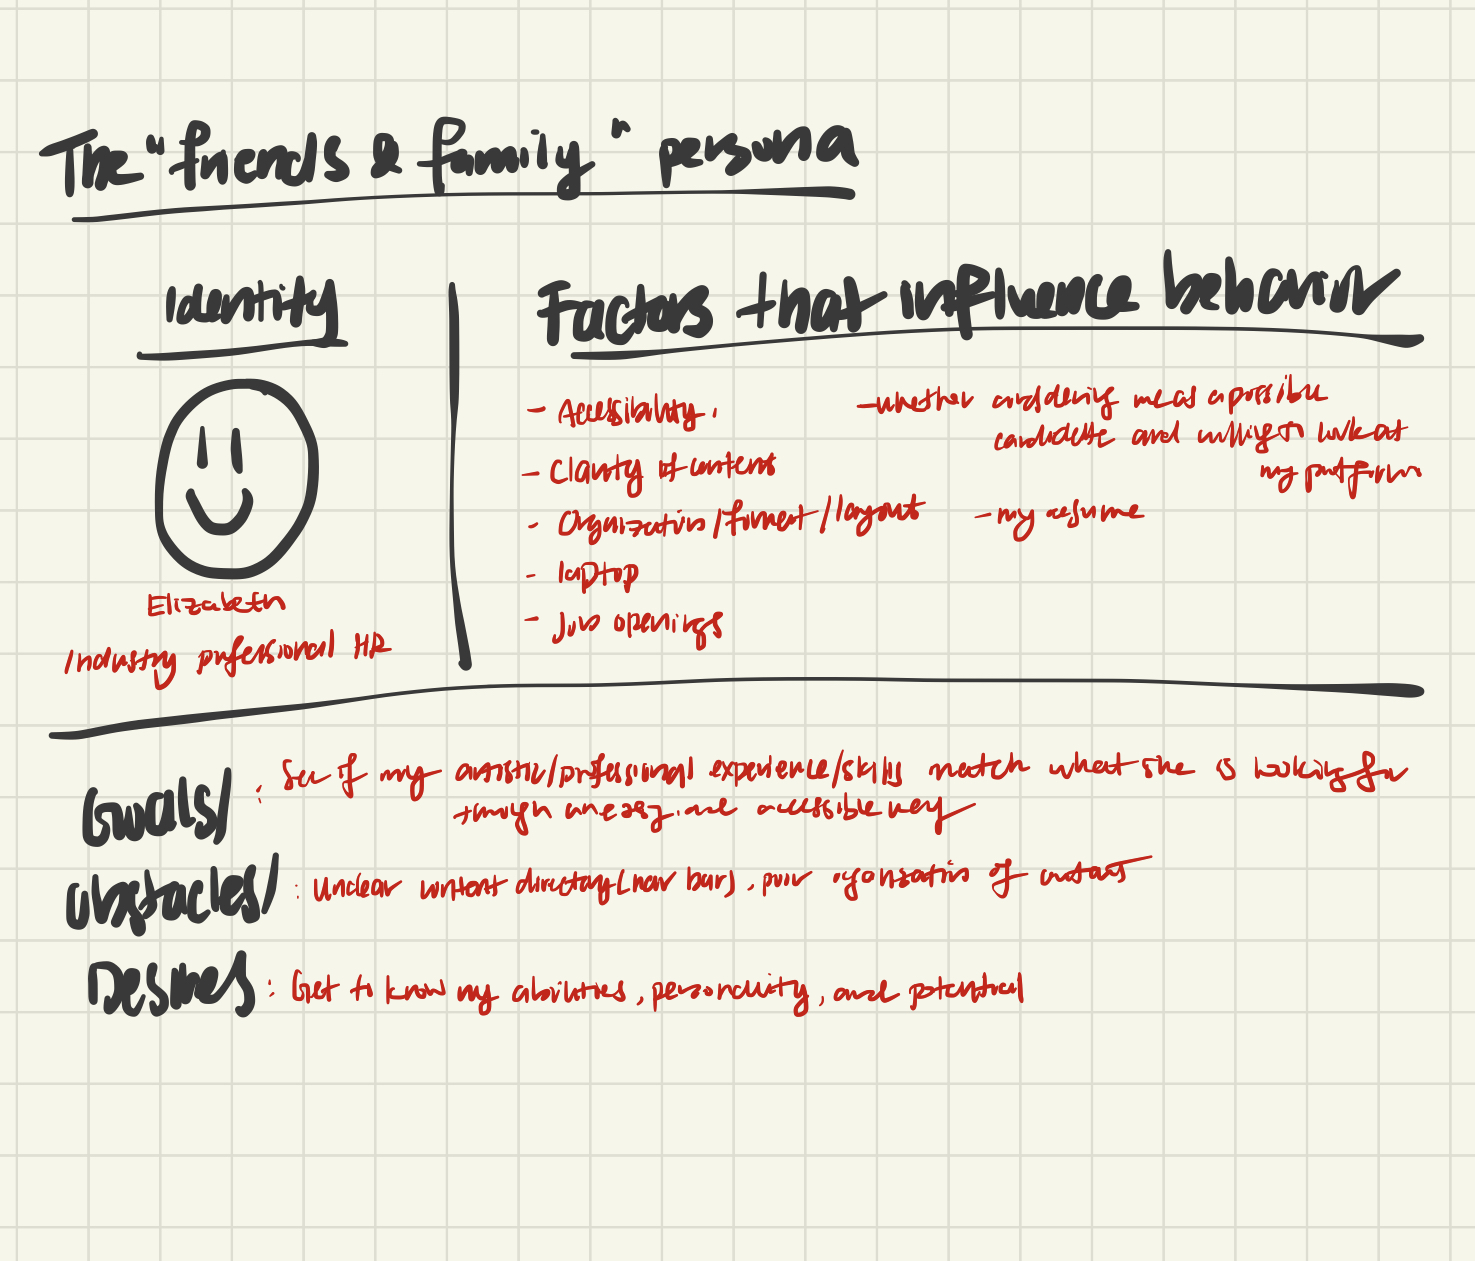 The "friends & family" persona
Identity
Factors that influence behavior
- Accessibility.
- Clarity of content
- Organization/format/layout
- laptop
- Job openings
- whether considering me as a possible
candidate and willing to look at
my portform
- my resume
Elizabeth
Industry professional HR
Goals/ : See if my artistic/professional experience/skills match what she is looking for
through an easy and accessible way
obstacles/ : Unclear content directory (nav bar), poor organization of
Desires : Get to know my abilities, personality, and potential